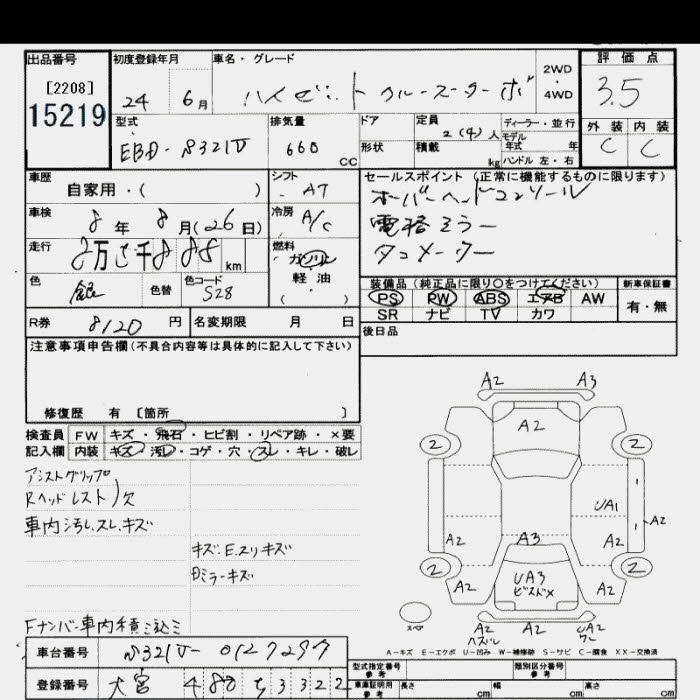 出品番号 初度登録年月 車名・グレード 2WD・4WD 評価点
[2208]
15219
24 6月 ハイゼット クルーズターボ 3.5
型式 排気量 ドア 定員 ディーラー・並行 外装 内装
EBD-S321V 660 CC 形状 積載 2(4)人 kg モデル年式 年 ハンドル 左・右 C C
車歴 シフト セールスポイント (正常に機能するものに限ります)
自家用・( ) AT オーバーヘッドコンソール
車検 8年 8月(26日) 冷房 A/C 電格ミラー
走行 km 燃料 ガソリン 軽油 ( ・ ) タコメーター
色 銀 色替 色コード S28
装備品 (純正品に限り○をつけてください) 新車保証書
PS PW ABS エアB AW 有・無
SR ナビ TV カワ
R券 8120円 名変期限 月 日 後日品
注意事項申告欄(不具合内容等は具体的に記入して下さい)
修復歴 有 [箇所 ]
検査員 FW キズ・飛石・ヒビ割・リペア跡・×要
記入欄 内装 キズ・汚レ・コゲ・穴・スレ・キレ・破レ
アシストグリップ
Rヘッドレスト)欠
車内汚レ、スレ、キズ
キズ、E、スリキズ
ミラーキズ
Fナンバー車内積ミ込ミ
A2 A3
A2
2 2
UA1
A2 A3 A2 A2
2 2
A2 UA3 A2
ビスドメ
スペア A2 A2 UA2
ハズレ ワレ
A-キズ E-エクボ U-凹み W-補修跡 S-サビ C-腐食 XX-交換済
車台番号 S321V- 0127297
型式指定番号 参考 類別区分番号 参考
登録番号 大宮 480 ち 3322
車庫証明用 参考 長さ cm 幅 cm 高さ cm